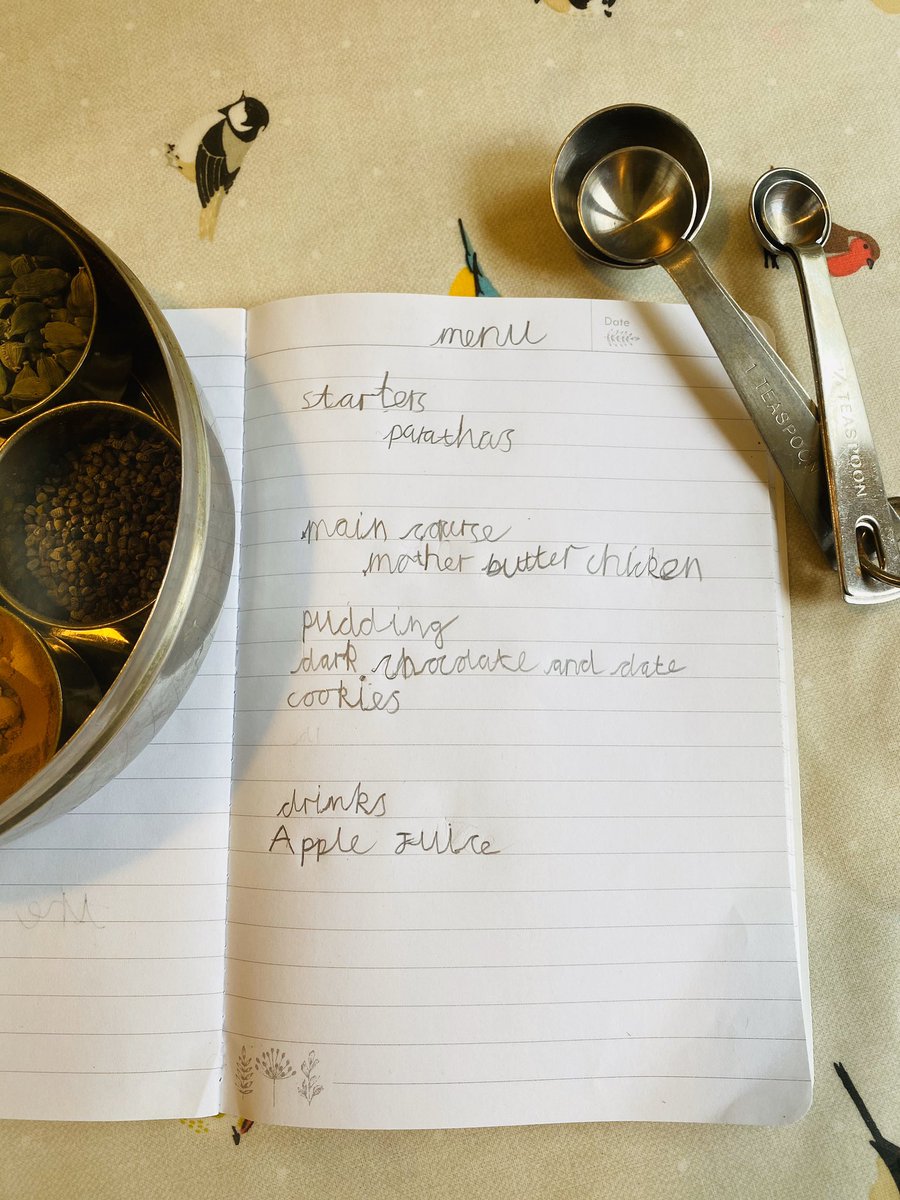 menu
Date
starters
parathas
main course
mother butter chicken
pudding
dark chocolate and date
cookies
drinks
Apple Juice
1 TEASPOON
TEASPOON